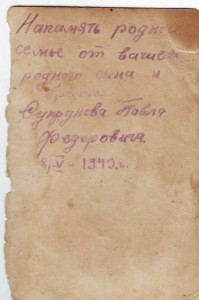 Напамять родной
семье от вашего
родного сына и
брата
Супрунова Павла
Федоровича
V - 1945г.